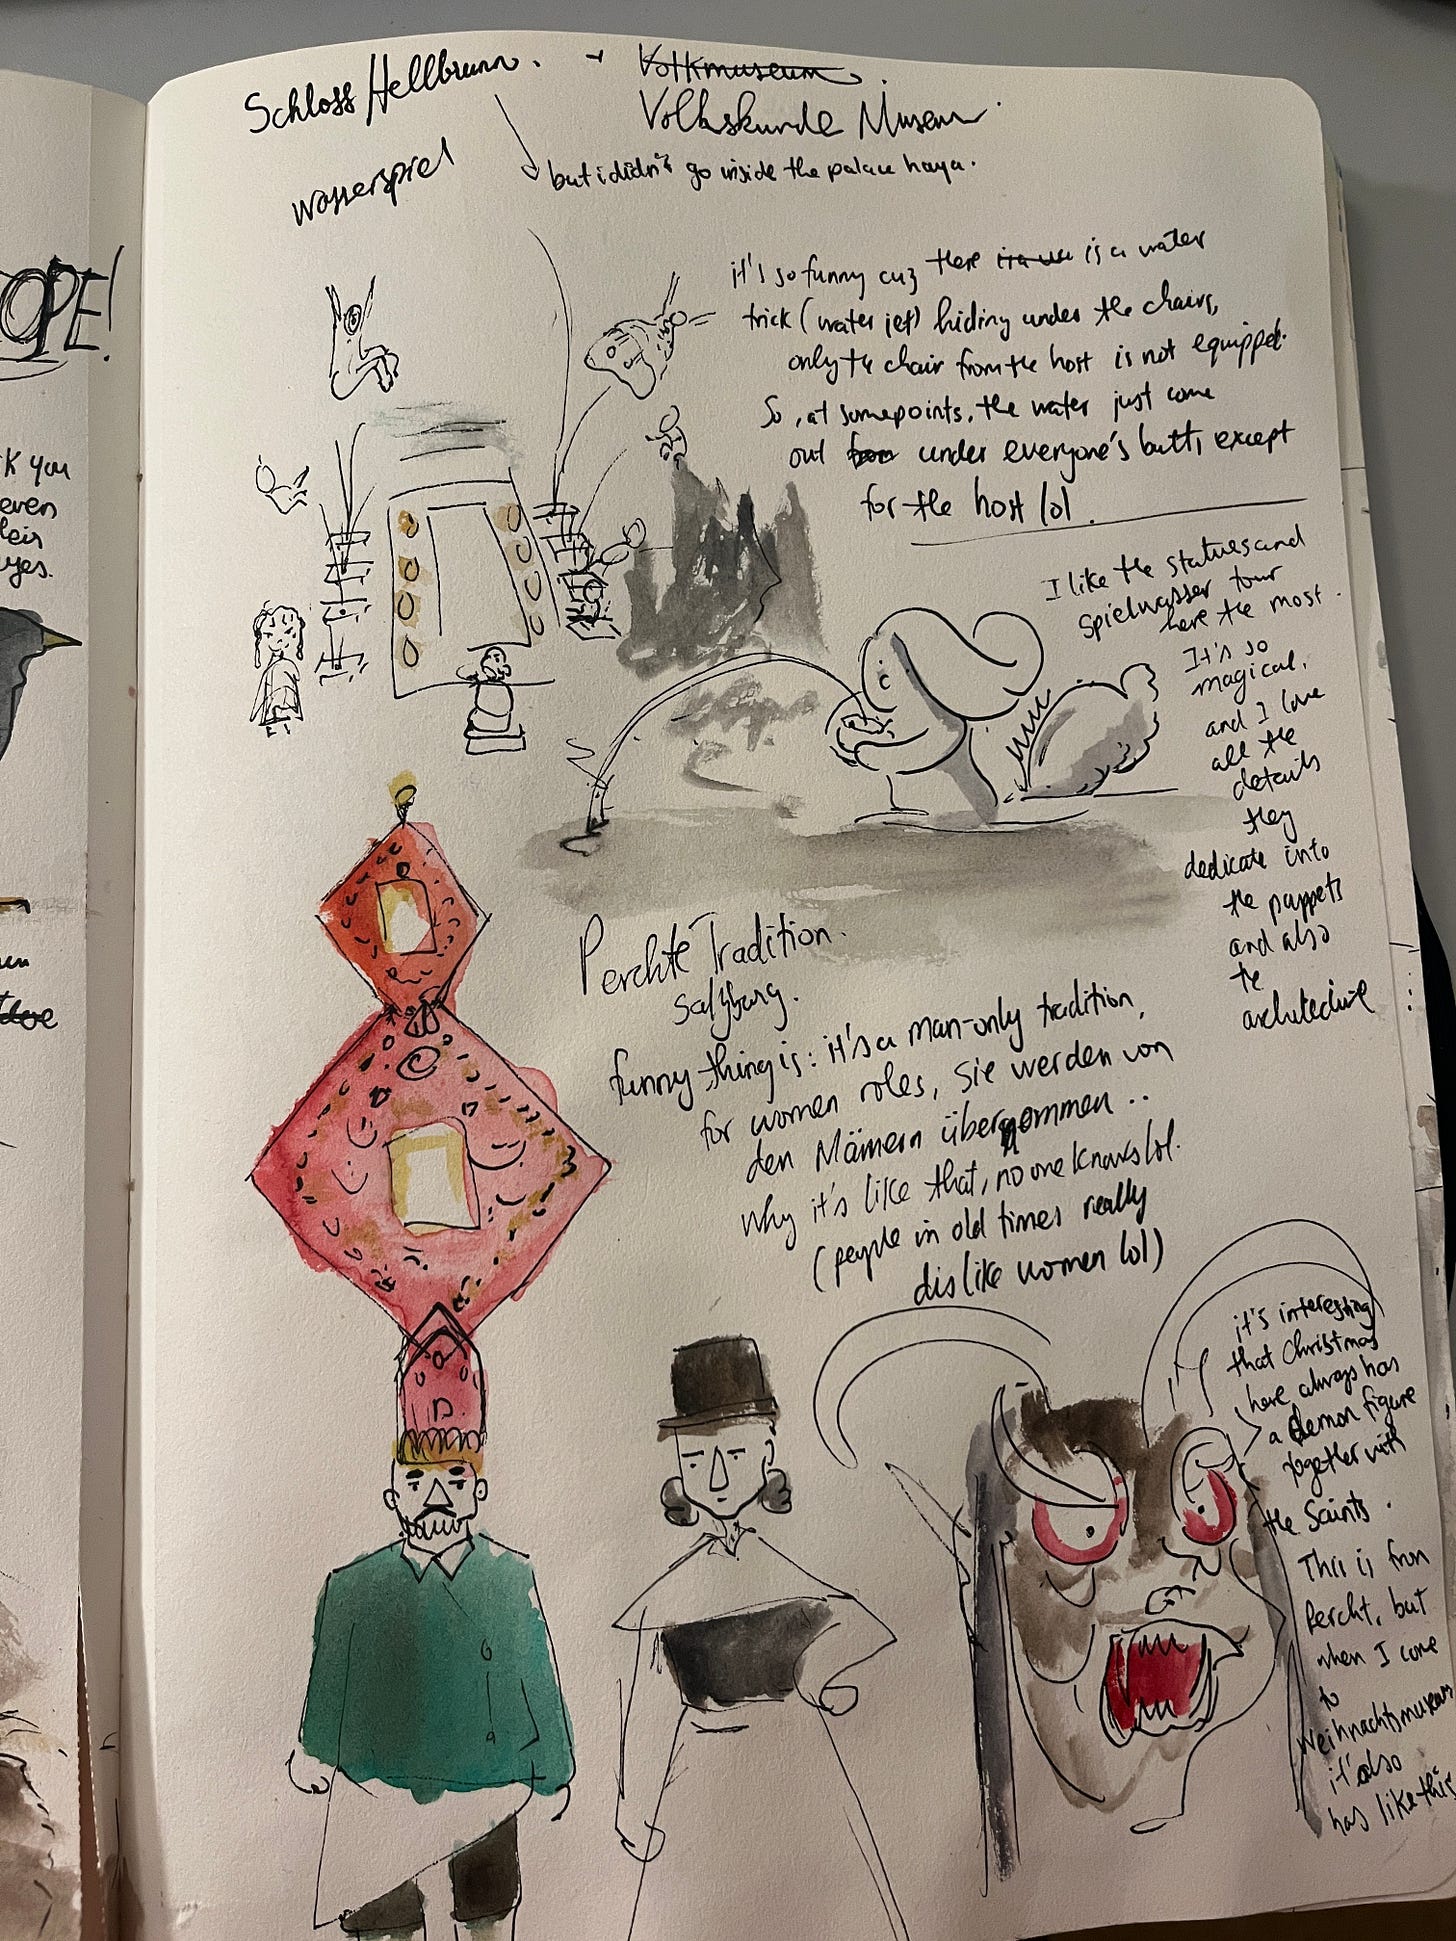 OPE!
k you
even
yes.
Schloss Hellbrunn. + Volkmuseum.
Volkskunde Museum.
but i didn't go inside the palace haya.
wasserspiel
it's so funny cuz there is a water
trick (water jet) hiding under the chairs,
only the chair from the host is not equipped.
So, at somepoints, the water just come
out under everyone's butts except
for the host lol.
I like the statues and
spielwasser tour
here the most.
It's so
magical,
and I love
all the
details
they
dedicate into
the puppets
and also
the
architecture
Perchte Tradition.
Salzburg.
funny thing is: it's a man-only tradition,
for women roles, sie werden von
den Männern übernommen..
why it's like that, no one knows lol.
(people in old times really
dislike women lol)
it's interesting
that Christmas
here always has
a demon figure
together with
the Saints.
This is from
Percht, but
when I come
to
Weihnachtsmuseum
it'also
has like this